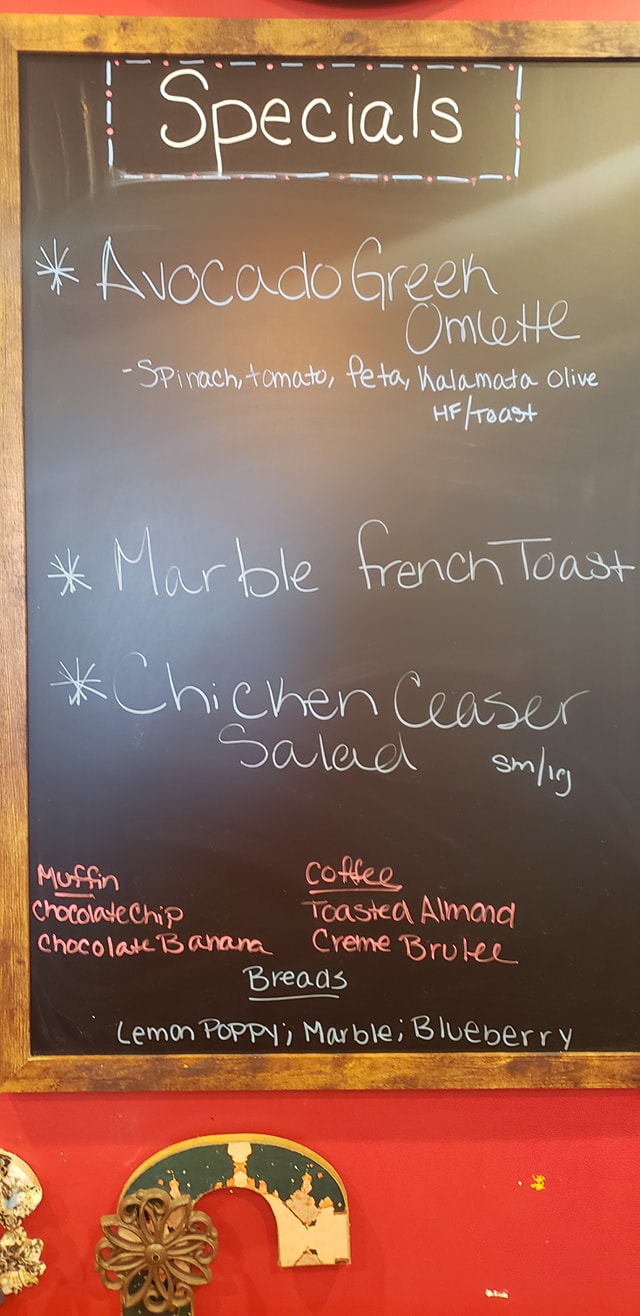 Specials
* Avocado Green
Omlette
- Spinach, tomato, feta, Kalamata Olive
HF/Toast
* Marble french Toast
* Chicken Ceaser
Salad sm/lg
Muffin
Chocolate Chip
Chocolate Banana
Coffee
Toasted Almond
Creme Brulee
Breads
Lemon Poppy; Marble; Blueberry